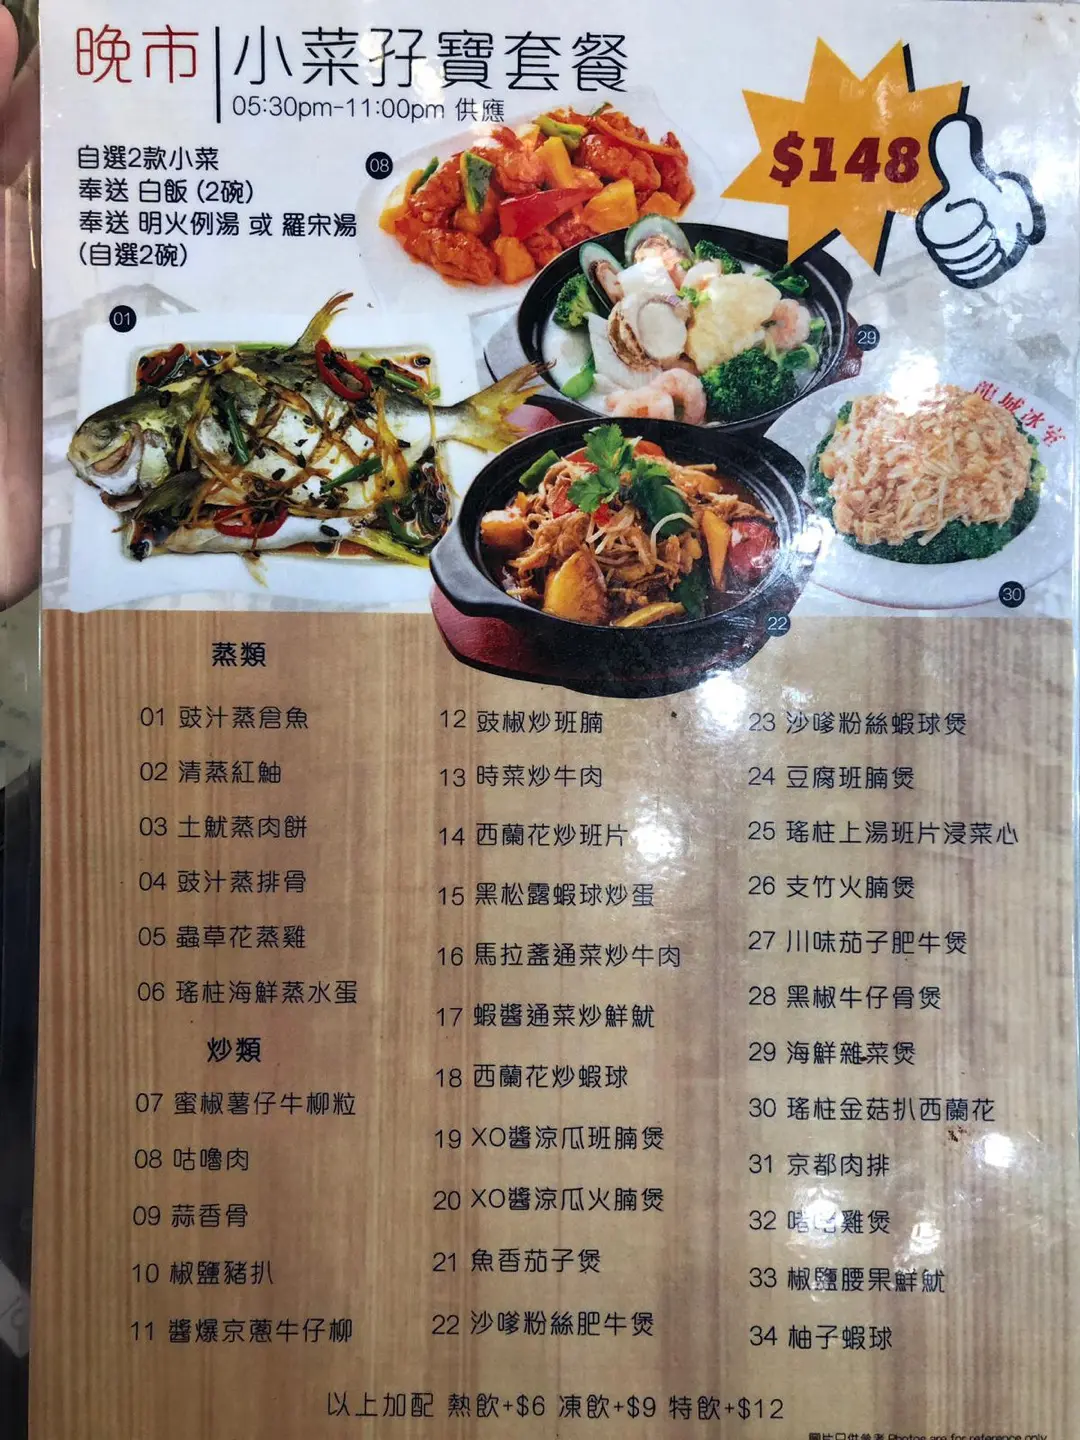 晚市 小菜孖寶套餐
05:30pm-11:00pm 供應
$148
自選2款小菜
奉送 白飯 (2碗)
奉送 明火例湯 或 羅宋湯
(自選2碗)
08
01
29
龍城冰室
30
22
蒸類
01 豉汁蒸倉魚
02 清蒸紅鮋
03 土魷蒸肉餅
04 豉汁蒸排骨
05 蟲草花蒸雞
06 瑤柱海鮮蒸水蛋
炒類
07 蜜椒薯仔牛柳粒
08 咕嚕肉
09 蒜香骨
10 椒鹽豬扒
11 醬爆京蔥牛仔柳
12 豉椒炒班腩
13 時菜炒牛肉
14 西蘭花炒班片
15 黑松露蝦球炒蛋
16 馬拉盞通菜炒牛肉
17 蝦醬通菜炒鮮魷
18 西蘭花炒蝦球
19 XO醬涼瓜班腩煲
20 XO醬涼瓜火腩煲
21 魚香茄子煲
22 沙嗲粉絲肥牛煲
23 沙嗲粉絲蝦球煲
24 豆腐班腩煲
25 瑤柱上湯班片浸菜心
26 支竹火腩煲
27 川味茄子肥牛煲
28 黑椒牛仔骨煲
29 海鮮雜菜煲
30 瑤柱金菇扒西蘭花
31 京都肉排
32 啫啫雞煲
33 椒鹽腰果鮮魷
34 柚子蝦球
以上加配 熱飲+$6 凍飲+$9 特飲+$12
圖片只供參考 Photos are for reference only